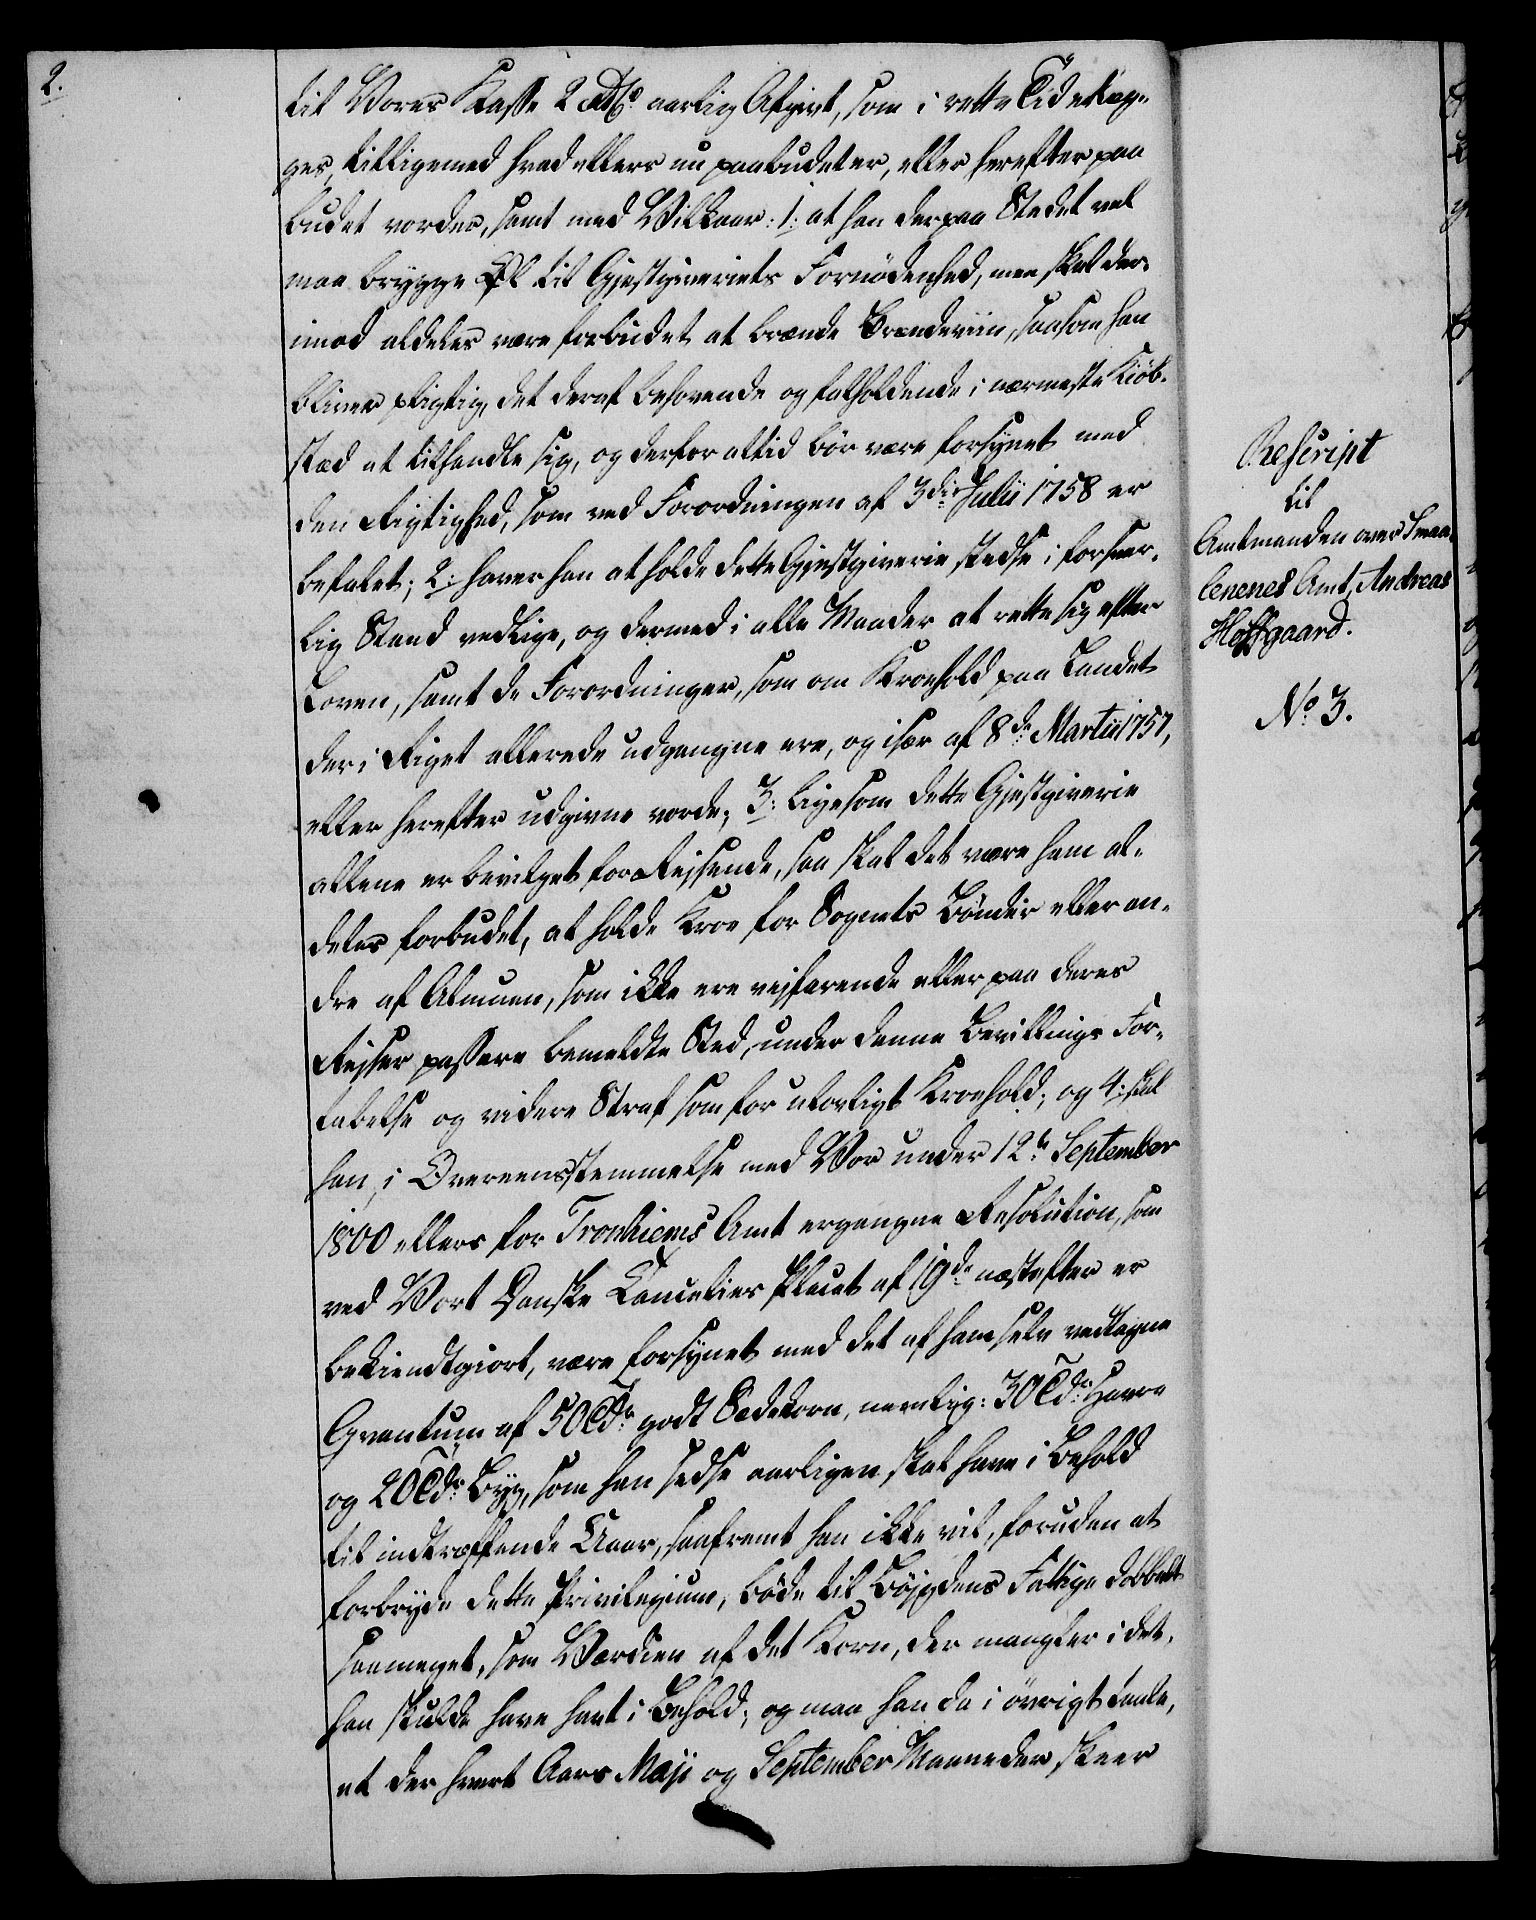 2.
til Vores Kasse 2 Rdlr aarlig Afgivt, som i rette Tid erlæg-
ges, tilligemed hvad ellers nu paabudet er, eller herefter paa
budet vorder, samt med Vilkaar: 1. at han derpaa Stedet vel
maa brygge Øl til Gjestgiveriets Fornödenhed, men skal der-
imod aldeles være forbudet at brænde Brændeviin, saasom han
bliver pligtig, det deraf behovende og falholdende i nærmeste Kiöb-
stæd at tilhandle sig, og derfor altid bör være forsynet med
den Rigtighed, som ved Forordningen af 3die Julii 1758 er
befalet; 2: haver han at holde dette Gjestgiverie stedse i forsvar-
lig Stand vedlige, og dermed i alle Maader at rette sig efter
Loven, samt de Forordninger, som om Kroehold paa Landet
der i Riget allerede udgangne ere, og især af 8de Martii 1757,
eller herefter udgivne vorde; 3: ligesom dette Gjestgiverie
allene er bevilget for Rejsende, saa skal det være ham al-
deles forbudet, at holde Kroe for Sognets Bönder eller an-
dre af Almuen, som ikke ere vejfarende eller paa deres
Rejser passere bemeldte Sted, under denne Bevillings For-
tabelse og videre Straf som for ulovligt Kroehold; og 4: skal
han, i Overeensstemmelse med Vor under 12te September
1800 ellers for Tronhiems Amt ergangne Resolution, som
ved Vort Danske Cancelies Placat af 19de næstefter er
bekiendtgiort, være forsynet med det af ham selv vedtagne
Qvantum af 50 Tdr godt Sædekorn, nemlig: 30 Tdr Havre
og 20 Tdr Byg, som han stedse aarligen skal have i Behold
til indtræffende Uaar, saafremt han ikke vil, foruden at
forbryde dette Privilegium, böde til Böjgdens Fattige dobbelt
saameget, som Værdien af det Korn, der mangler i det,
han skulde have havt i Behold; og maa han da i övrigt taale,
at der hvert Aars Maji og September Maaneder skeer
Rescript
til
Amtmanden over Smaa-
lenenes Amt, Andreas
Höffgaard.
No 3.